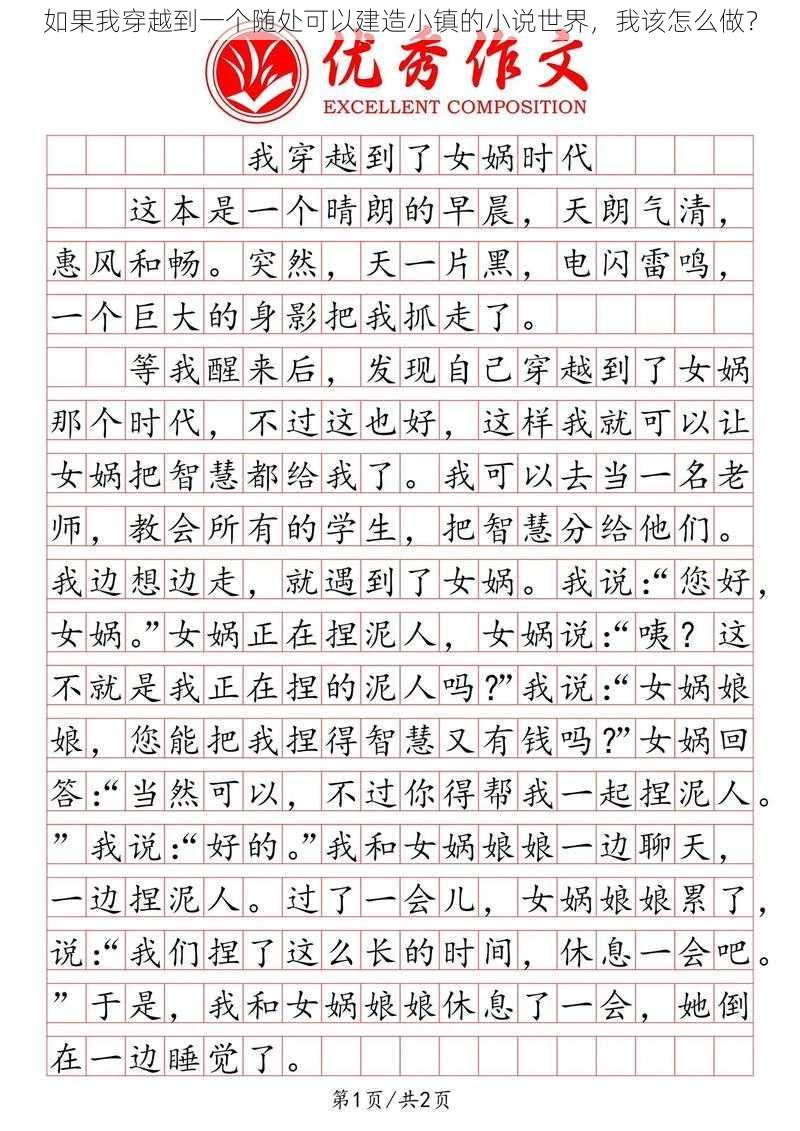 如果我穿越到一个随处可以建造小镇的小说世界，我该怎么做？
优秀作文
EXCELLENT COMPOSITION
我穿越到了女娲时代
这本是一个晴朗的早晨，天朗气清，
惠风和畅。突然，天一片黑，电闪雷鸣，
一个巨大的身影把我抓走了。
等我醒来后，发现自己穿越到了女娲
那个时代，不过这也好，这样我就可以让
女娲把智慧都给我了。我可以去当一名老
师，教会所有的学生，把智慧分给他们。
我边想边走，就遇到了女娲。我说：“您好，
女娲。”女娲正在捏泥人，女娲说：“咦？这
不就是我正在捏的泥人吗？”我说：“女娲娘
娘，您能把我捏得智慧又有钱吗？”女娲回
答：“当然可以，不过你得帮我一起捏泥人。
”我说：“好的。”我和女娲娘娘一边聊天，
一边捏泥人。过了一会儿，女娲娘娘累了，
说：“我们捏了这么长的时间，休息一会吧。
”于是，我和女娲娘娘休息了一会，她倒
在一边睡觉了。
第1页/共2页